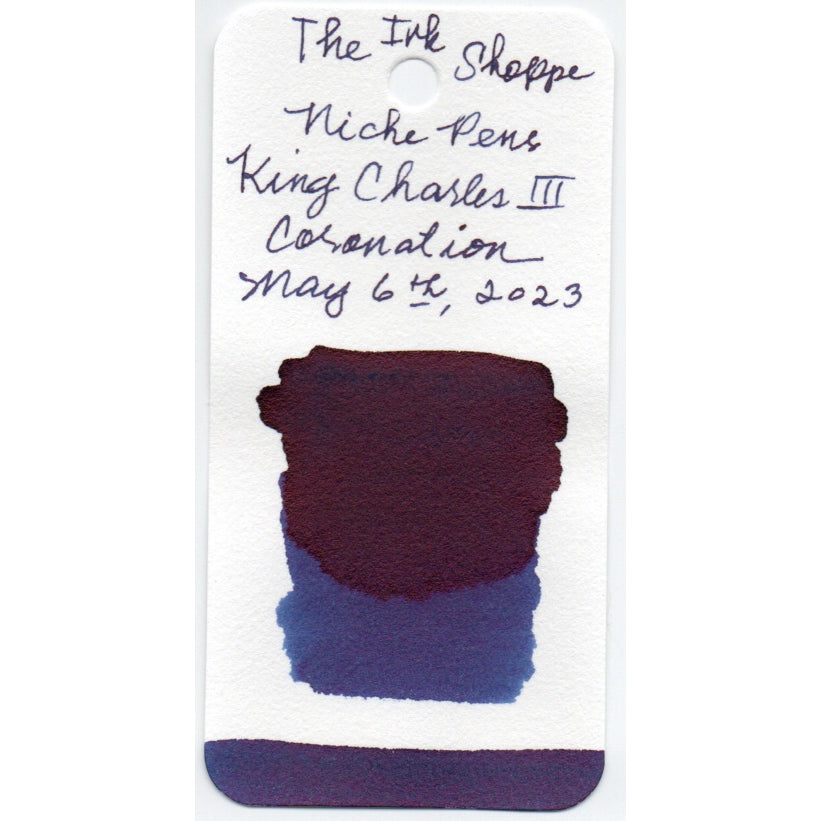 The Ink Shoppe
Niche Pens
King Charles III
Coronation
May 6th, 2023